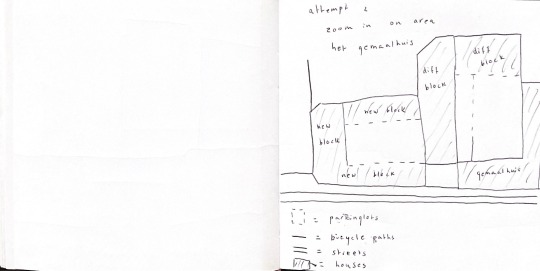 attempt 1
zoom in on area
het gemaalhuis
diff
block
diff
block
new block
new
block
new block
gemaalhuis
= parkinglots
= bicycle paths
= streets
= houses